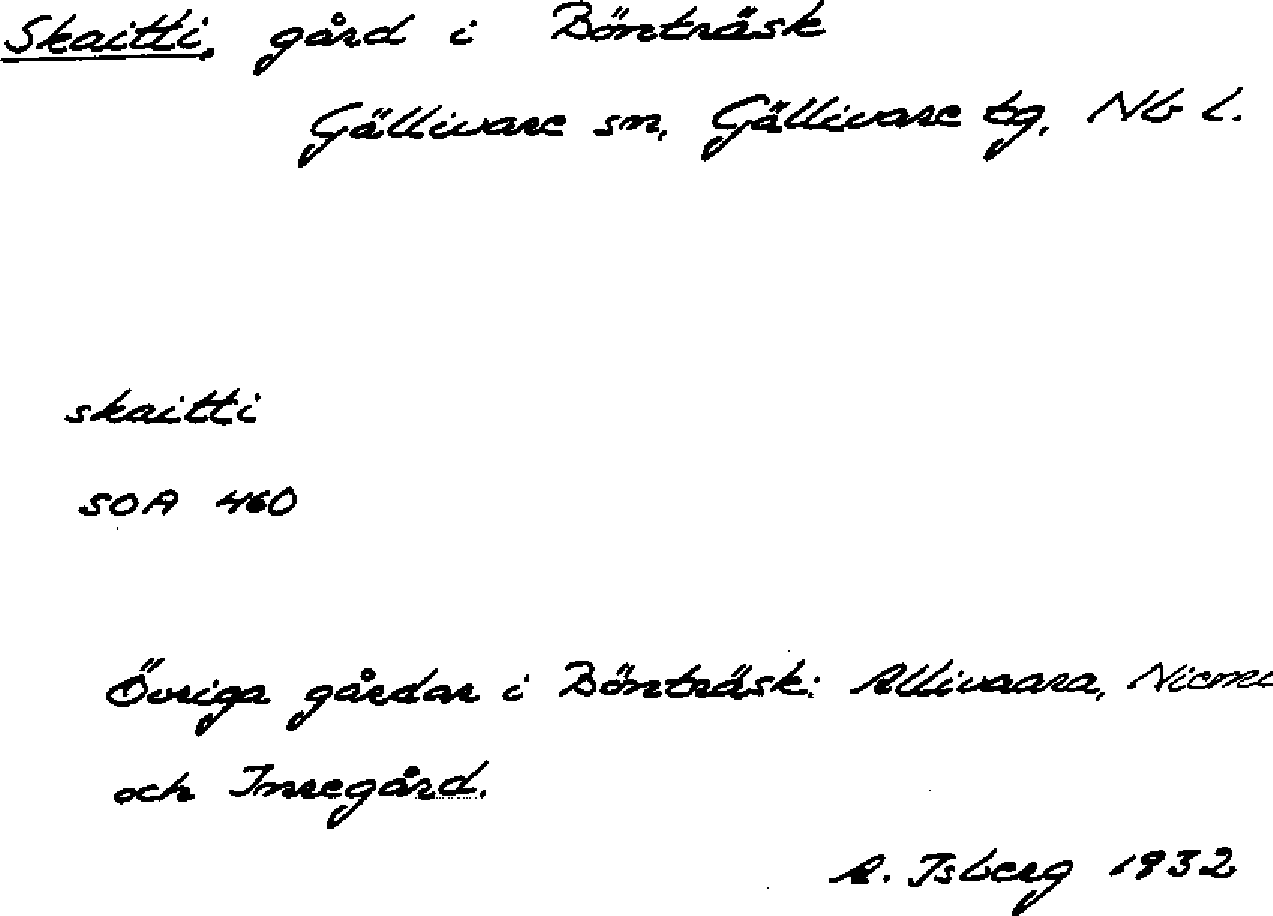 Skaitti, gård i Bönträsk
Gällivare sn, Gällivare tg, Nb l.
skaitti
SOA 460
Övriga gårdar i Bönträsk: Allivaara, Niemi
och Inregård.
A. Isberg 1932